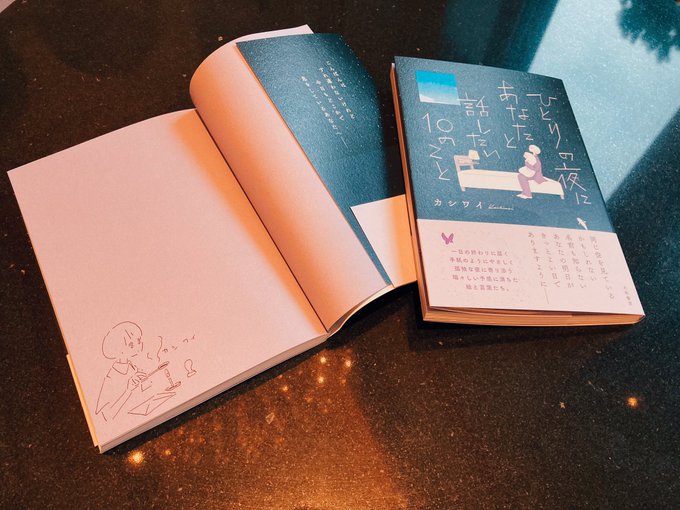 カシワイ
ひとりの夜に
あなたと
話したい
10のこと
カシワイ
Kashiwai
同じ空を見ている
かもしれない
名前も知らない
あなたの明日が
きっとよい日で
ありますように
一日の終わりに届く
手紙のようにやさしく
孤独な夜に寄り添う
瑞々しい予感に満ちた
絵と言葉たち。